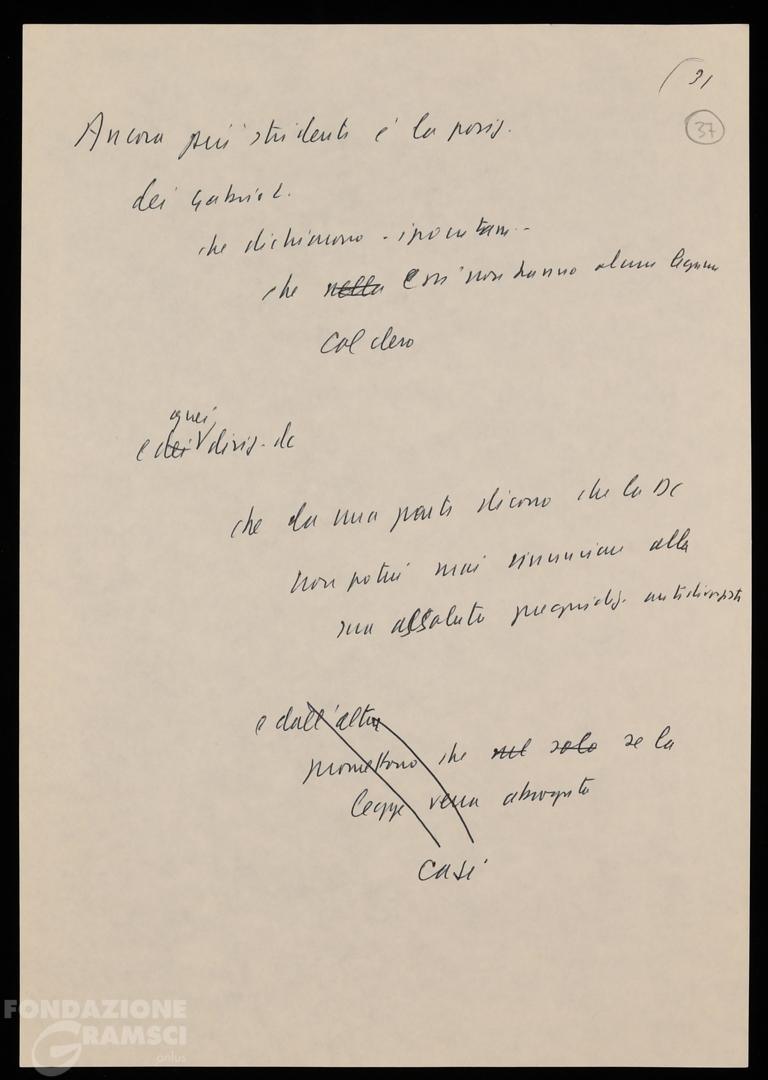 31
37
Ancora più stridente è la posiz.
dei Gabrio L.
che dichiarano - ipocritam. -
che nella essi non hanno alcun legame
col clero
quei
e dei divis. dc
che da una parte dicono che la DC
non potrà mai rinunciare alla
sua assoluta pregiudiz. antidivorzista
e dall'altra
promettono che nel solo se la
legge verrà abrogata
casi
FONDAZIONE
GRAMSCI
onlus